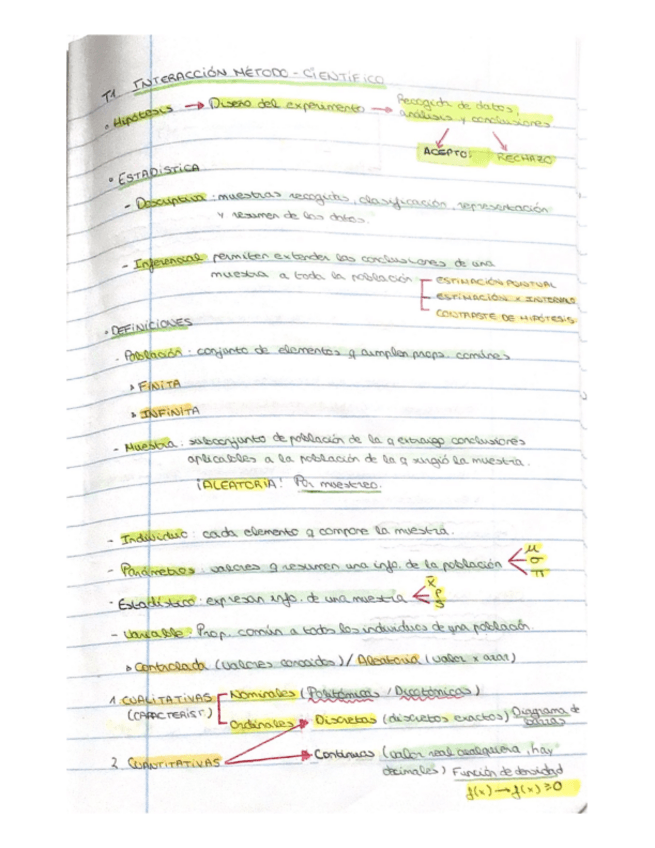 T.1 INTERACCIÓN MÉTODO-CIENTÍFICO
• Hipótesis → Diseño del experimento → Recogida de datos,
análisis y conclusiones
ACEPTO RECHAZO
• ESTADÍSTICA
- Descriptiva: muestras recogidas, clasificación, representación
y resumen de los datos.
- Inferencial permiten extender las conclusiones de una
muestra a toda la población
ESTIMACIÓN PUNTUAL
ESTIMACIÓN x INTERVALO
CONTRASTE DE HIPÓTESIS
• DEFINICIONES
- Población: conjunto de elementos q cumplen props. comúnes
> FINITA
> INFINITA
- Muestra: subconjunto de población de la q extraigo conclusiones
aplicables a la población de la q surgió la muestra.
¡ALEATORIA! Por muestreo.
- Individuo: cada elemento q compone la muestra.
- Parámetros: valores q resumen una info. de la población < μ σ π
- Estadístico: expresan info. de una muestra < x̄ p s
- Variable: Prop. común a todos los individuos de una población.
> Controlada (valores conocidos) / Aleatoria (valor x azar)
1. CUALITATIVAS Nominales (Politómicas / Dicotómicas)
(CARACTERÍST.)
Ordinales Discretas (discretos exactos) Diagrama de
barras
2. CUANTITATIVAS Continuas (valor real cualquiera, hay
decimales) Función de densidad
f(x) → f(x) ≥ 0